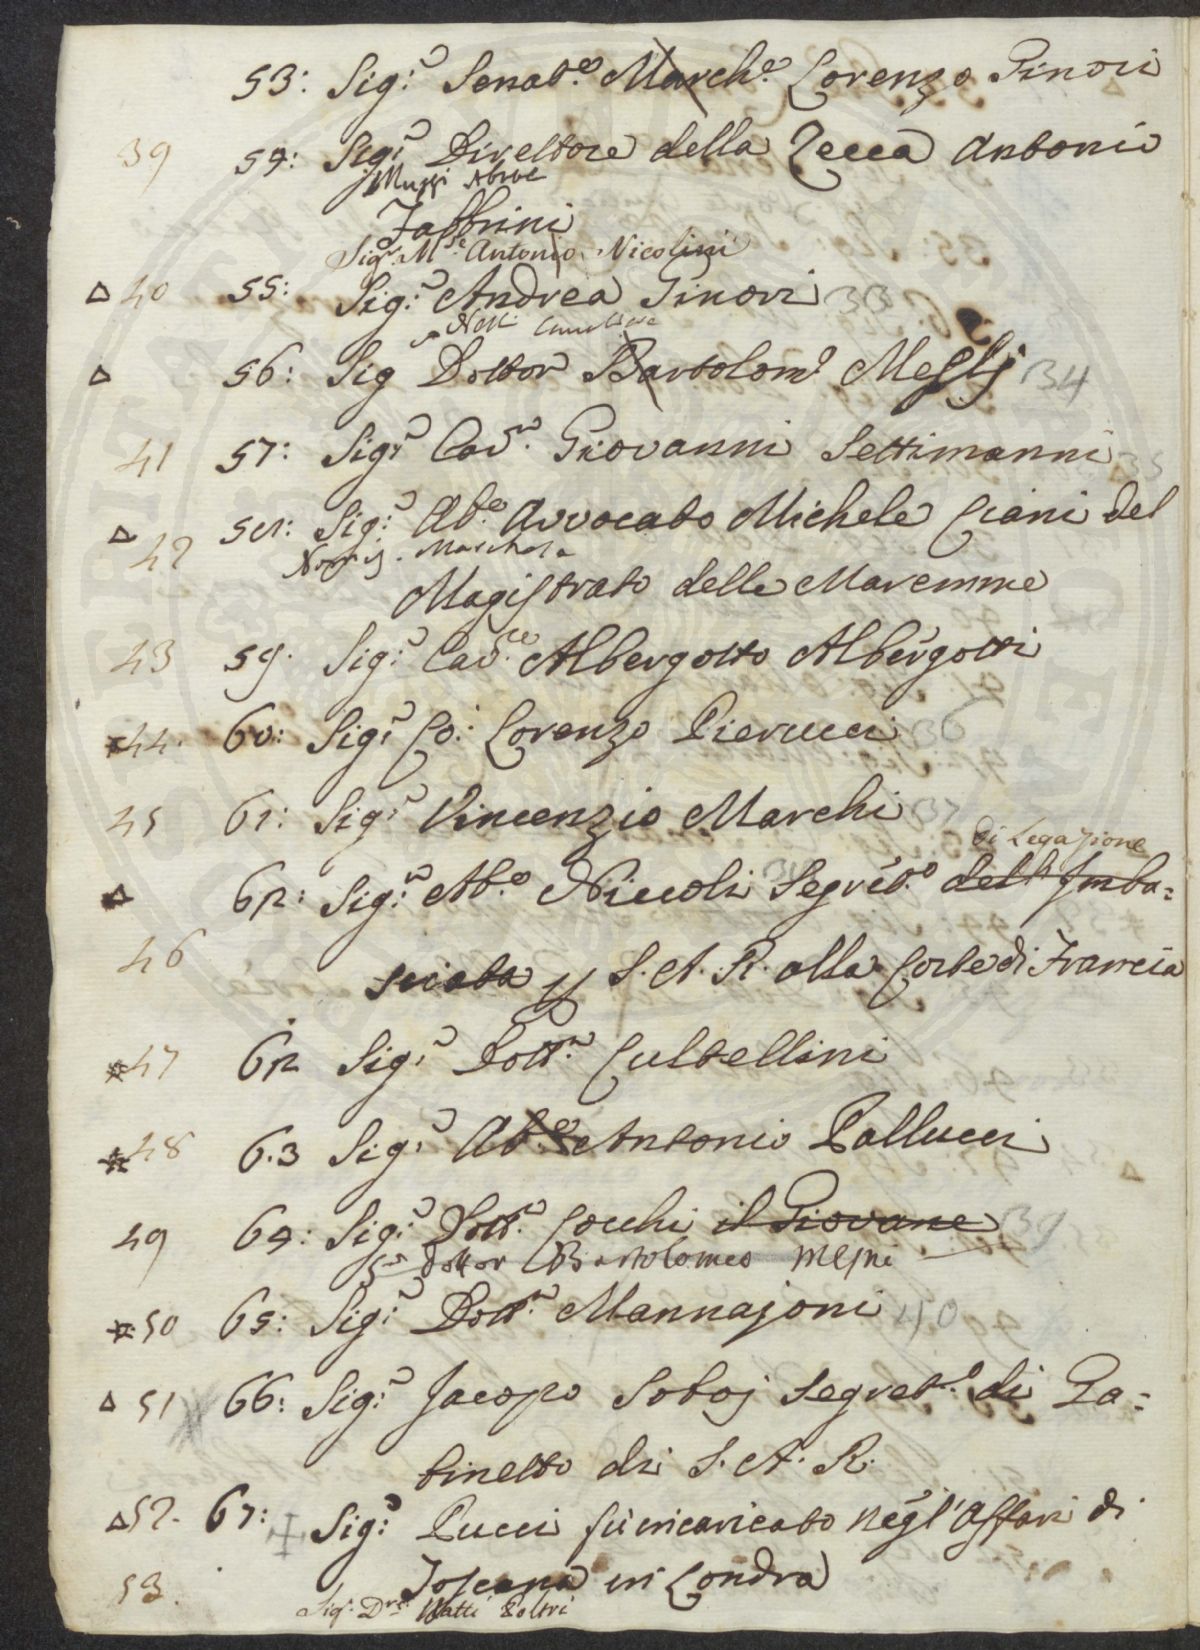 53: Sig.r Senat.e March.e Lorenzo Ginori
39 54: Sig.r Direttore della Zecca Antonio
Fabbrini
Sig.r M.se Antonio Nicolini
Δ 40 55: Sig.r Andrea Ginori 33
Nelli
Δ 56: Sig Dottor Bartolom.o Mesny 34
41 57: Sig.r Cav.r Giovanni Settimanni 35
Δ 42 58: Sig.r Ab.e Avvocato Michele Ciani del
Magistrato delle Maremme
43 59. Sig.r Cav.re Albergotto Albergotti
44. 60: Sig.r Co: Lorenzo Pierucci 36
45 61: Sig.r Vincenzio Marchi 37
di Legazione
Δ 62: Sig.r Ab.e Niccoli Segret.o dell'Imba=
46 sciata S. A. R. alla Corte di Francia
47 62 Sig.r Dott.r Cultellini
48 6.3 Sig.r Ab.e Antonio Pallucci
49 64: Sig.r Dott.r Cocchi il Giovane 39
S.r Dottor Bartolomeo Mesni
50 65: Sig.r Dott.r Mannajoni 40
Δ 51 66: Sig.r Jacopo Soboj Segret.o di Ga=
binetto di S. A. R.
Δ 52. 67: Sig.r Pucci fù incaricato negl'Affari di
53. Toscana in Londra
Sig.r D.re